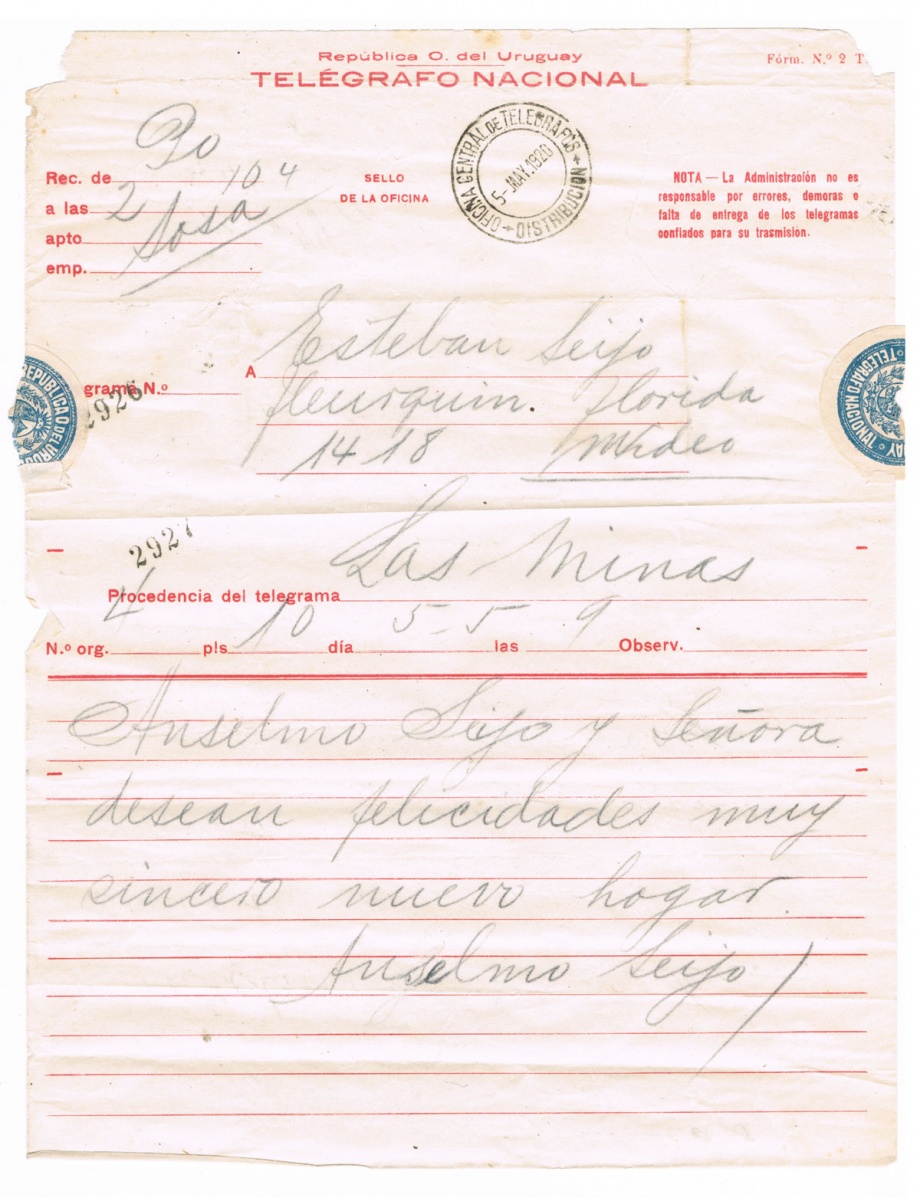 República O. del Uruguay
TELÉGRAFO NACIONAL
Fórm. N.º 2 T.
Rec. de
a las 2 10 4
apto Sosa
emp.
SELLO
DE LA OFICINA
OFICINA CENTRAL DE TELEGRAFOS
5 - MAY. 1920
DISTRIBUCION
NOTA — La Administración no es
responsable por errores, demoras o
falta de entrega de los telegramas
confiados para su trasmisión.
A Esteban Seijo
grama N.º 2926
fleurquin. Florida
1418 Mvideo
REPUBLICA O. DEL URUG
TELEGRAFO NACIONAL
UAY
2927
Procedencia del telegrama Las Minas
N.º org. 4 pls 10 día 5-5 las 9 Observ.
Anselmo Seijo y Señora
desean felicidades muy
sincero nuevo hogar
Anselmo Seijo